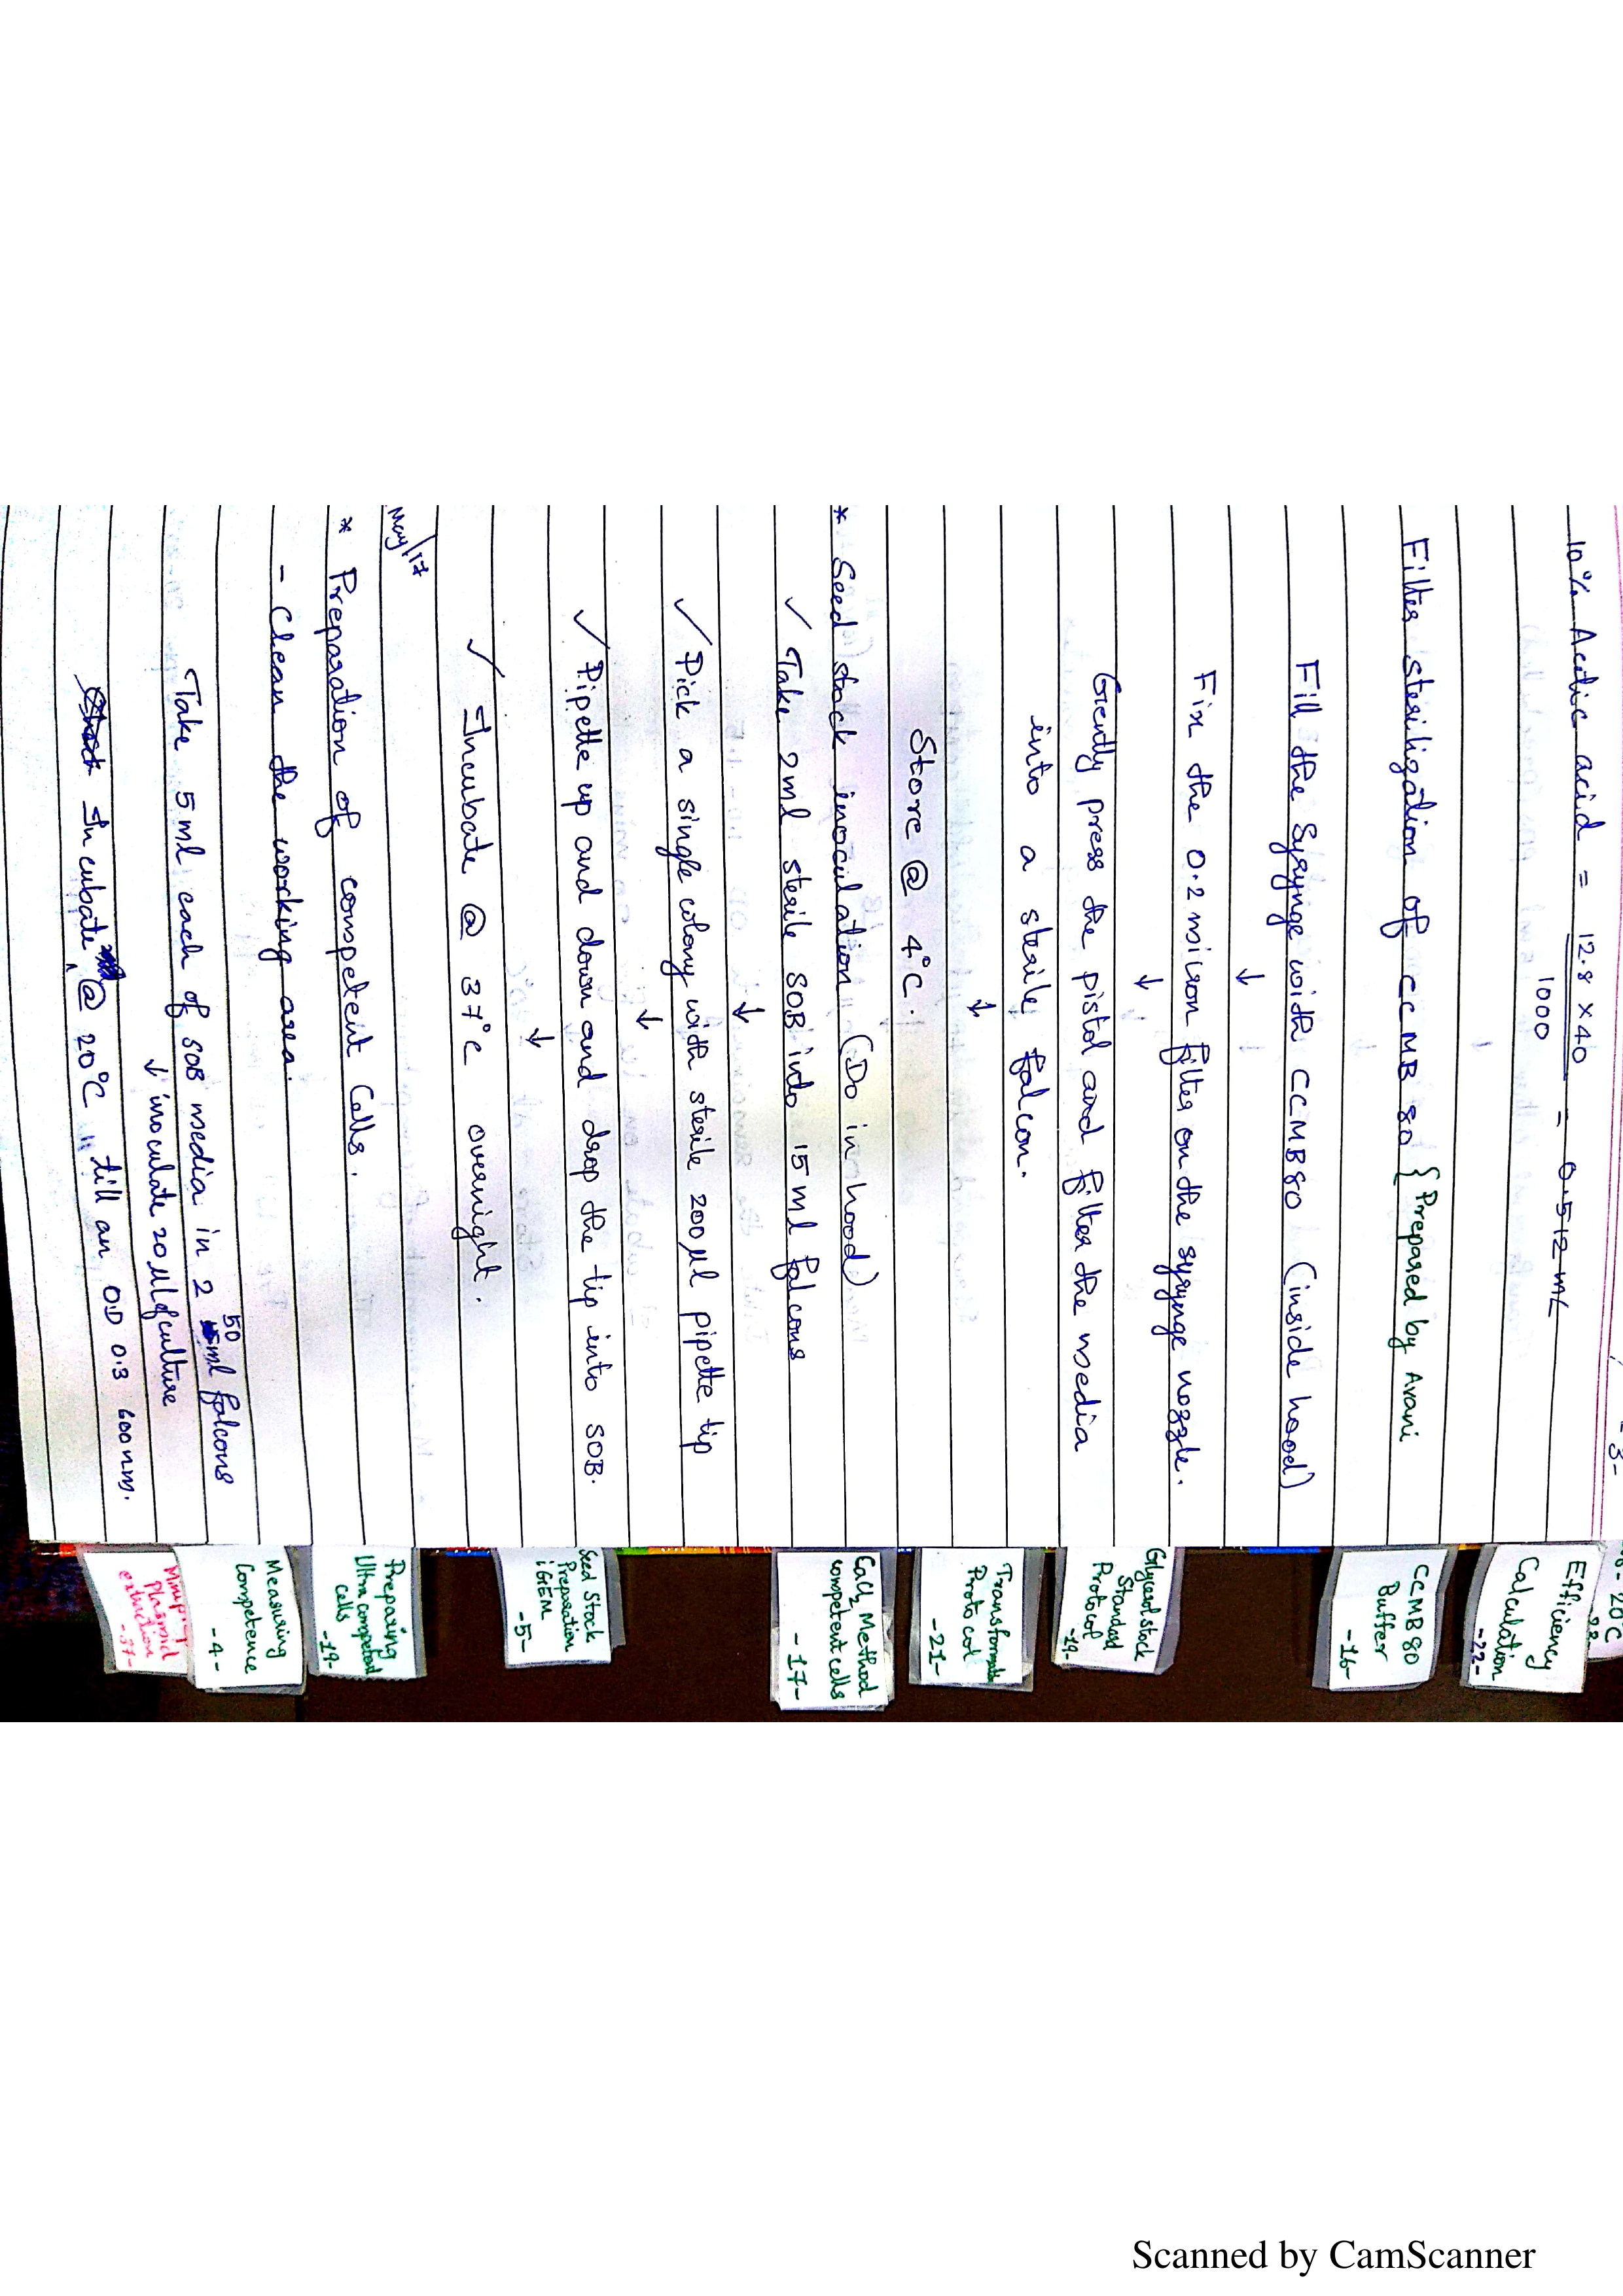 - 3 -
10% Acetic acid = 12.8 x 40 = 0.512 mL
1000
Filter sterilization of CCMB 80 { Prepared by Avani
Fill the Syrynge with CCMB80 (inside hood)
↓
Fix the 0.2 micron filter on the syrynge nozzle.
↓
Gently press the pistal and filter the media
into a sterile falcon.
↓
Store @ 4°C.
* Seed stock inoculation (Do in hood)
✓ Take 2ml sterile SOB into 15 ml falcons
↓
✓ Pick a single colony with sterile 200 µl pipette tip
↓
✓ Pipette up and down and drop the tip into SOB.
↓
✓ Incubate @ 37°C overnight.
May/17
* Preparation of competent Cells.
- Clean the working area.
Take 5 ml each of SOB media in 2 50 ml falcons
↓ inoculate 20 µl of culture
Incubate @ 20°C till an OD 0.3 600nm.
20°C
Efficiency
Calculation
-22-
CCMB 80
Buffer
-16-
Glycerol stock
Standard
Protocol
Transformatn
Protocol
-21-
CaCl2 Method
competent cells
-17-
Seed Stock
Preparation
iGEM
-5-
Preparing
Ultra competent
cells
-19-
Measuring
Competence
-4-
Plasmid
extraction
-37-
Scanned by CamScanner